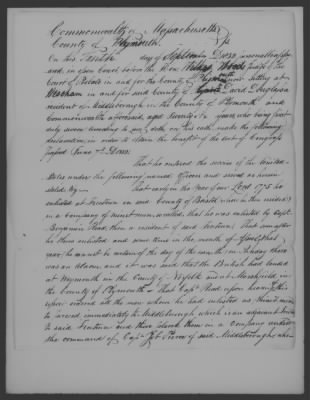 Commonwealth of Massachusetts
County of Plymouth. Ss
On this day of September D. 1832 personally appeared
and, in open Court before the Hon. Wilkes Wood Judge of the
Court of Probate in and for the County of Plymouth now sitting at
Wareham in and for said County of David Douglas a
resident of Middleborough in the County of Plymouth and
Commonwealth aforesaid, aged Seventy years, who being first
duly sworn according to law, doth on his oath, make the following
declaration, in order to obtain the benefit of the act of Congress
passed June 7th 1832.
That he entered the service of the United
States under the following named officers and served as herein
stated. Viz
That early in the year of our Lord 1775 he
enlisted at Freetown in said County of Bristol where he then resided
in a Company of minute men, so called, that he was enlisted by Capt.
Benjamin Read, then a resident of said Freetown. That soon after
he thus enlisted and some time in the month of that
year, he cannot be certain of the day of the month, on Sunday there
was an alarm, and it was said that the British had landed
at Weymouth in the County of Norfolk and at Marshfield in
the County of Plymouth. That Capt. Read upon hearing this
report ordered all the men whom he had enlisted as Minute men
to proceed immediately to Middleborough which is an adjacent town
to said Freetown and there them in a Company under
the command of Capt. Job Pierce of said Middleborough, who